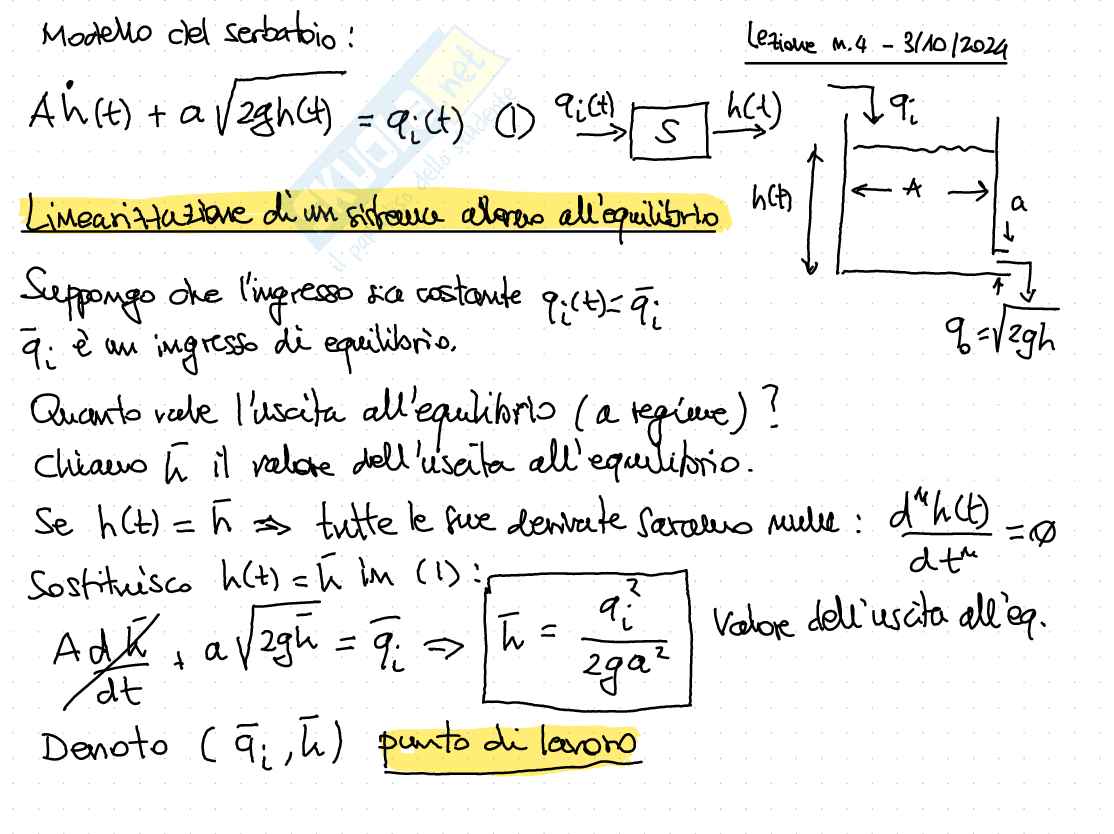 Modello del serbatoio:
Lezione n.4 - 3/10/2024
Aḣ(t) + a√2gh(t) = qᵢ(t) (1)
qᵢ(t) → S → h(t)
qᵢ
h(t)
A
a
q₀=√2gh
Linearizzazione di un sistema attorno all'equilibrio
Suppongo che l'ingresso sia costante qᵢ(t)=q̄ᵢ
q̄ᵢ è un ingresso di equilibrio.
Quanto vale l'uscita all'equilibrio (a regime)?
Chiamo h̄ il valore dell'uscita all'equilibrio.
Se h(t) = h̄ ⇒ tutte le sue derivate saranno nulle: dⁿh(t)/dtⁿ = ∅
Sostituisco h(t) = h̄ in (1):
A dh̄/dt + a√2gh̄ = q̄ᵢ ⇒ h̄ = qᵢ²/2ga² Valore dell'uscita all'eq.
Denoto (q̄ᵢ, h̄) punto di lavoro
SKUOLA.net
il paradiso dello studente